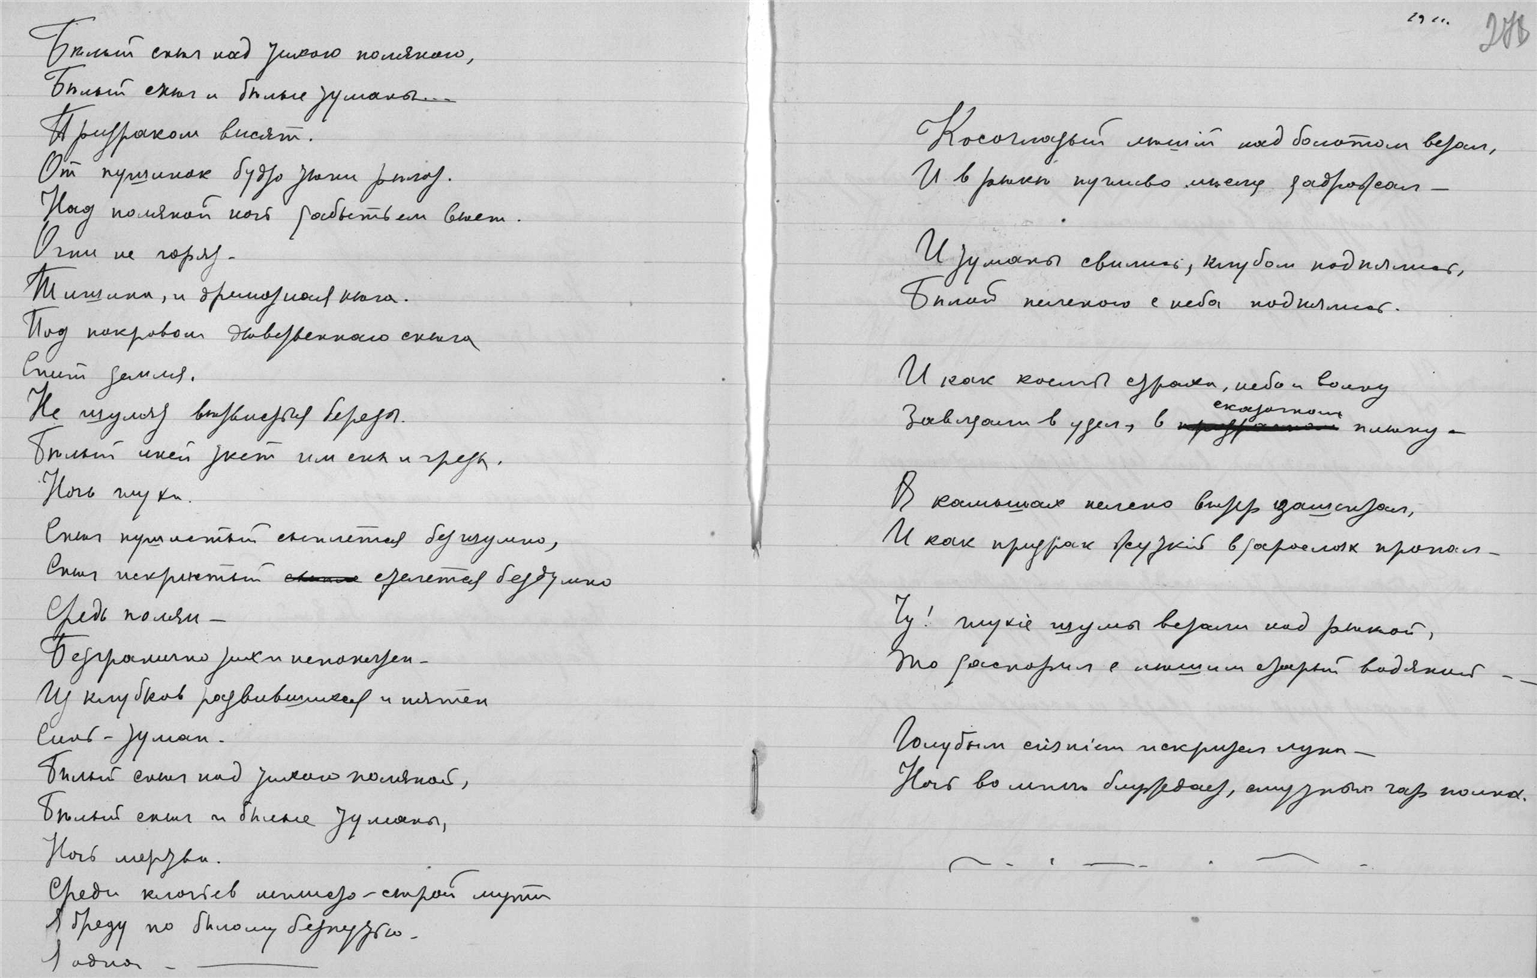 Бѣлый снѣг над тихою поляною,
Бѣлый снѣг и бѣлые туманы...
Призраком висят.
От пушинок будто тѣни рѣют.
Над поляной ночь забытьем вѣет.
Огни не горят -
Тишина, и дремотная нѣга.
Под покровом дѣвственнаго снѣга
Спит земля.
Не шумят вѣтвистыя березы.
Бѣлый иней ткет им сны и грезы.
Ночь тиха.
Снѣг пушистый сыплется безшумно,
Снѣг искристый стелется бездумно
Средь полян -
Безгранично тих и непонятен -
Из клубков развившихся и пятен
Снов - туман -
Бѣлый снѣг над тихою поляной,
Бѣлый снѣг и бѣлые туманы,
Ночь мертва.
Среди клочьев мшисто-сырой мути
Я бреду по бѣлому безпутью -
Я одна -
19 11.
27в
Косоглазый лѣшій над болотом встал,
И в рѣкѣ пугливо мѣсяц задрожал -
И туманы свились, клубом поднялись,
Бѣлой пеленою с неба поднялись.
И как космы страха, небо и волну
Завязали в узел, в сказочном плѣну -
В камышах несмѣло вѣтер зашептал,
И как призрак жуткій в зарослях пропал -
Чу! глухіе шумы встали над рѣкой,
То заспорил с лѣшим старый водяной - -
Голубым сіянiем искрится луна -
Ночь во мглѣ блуждает, смутных чар полна.